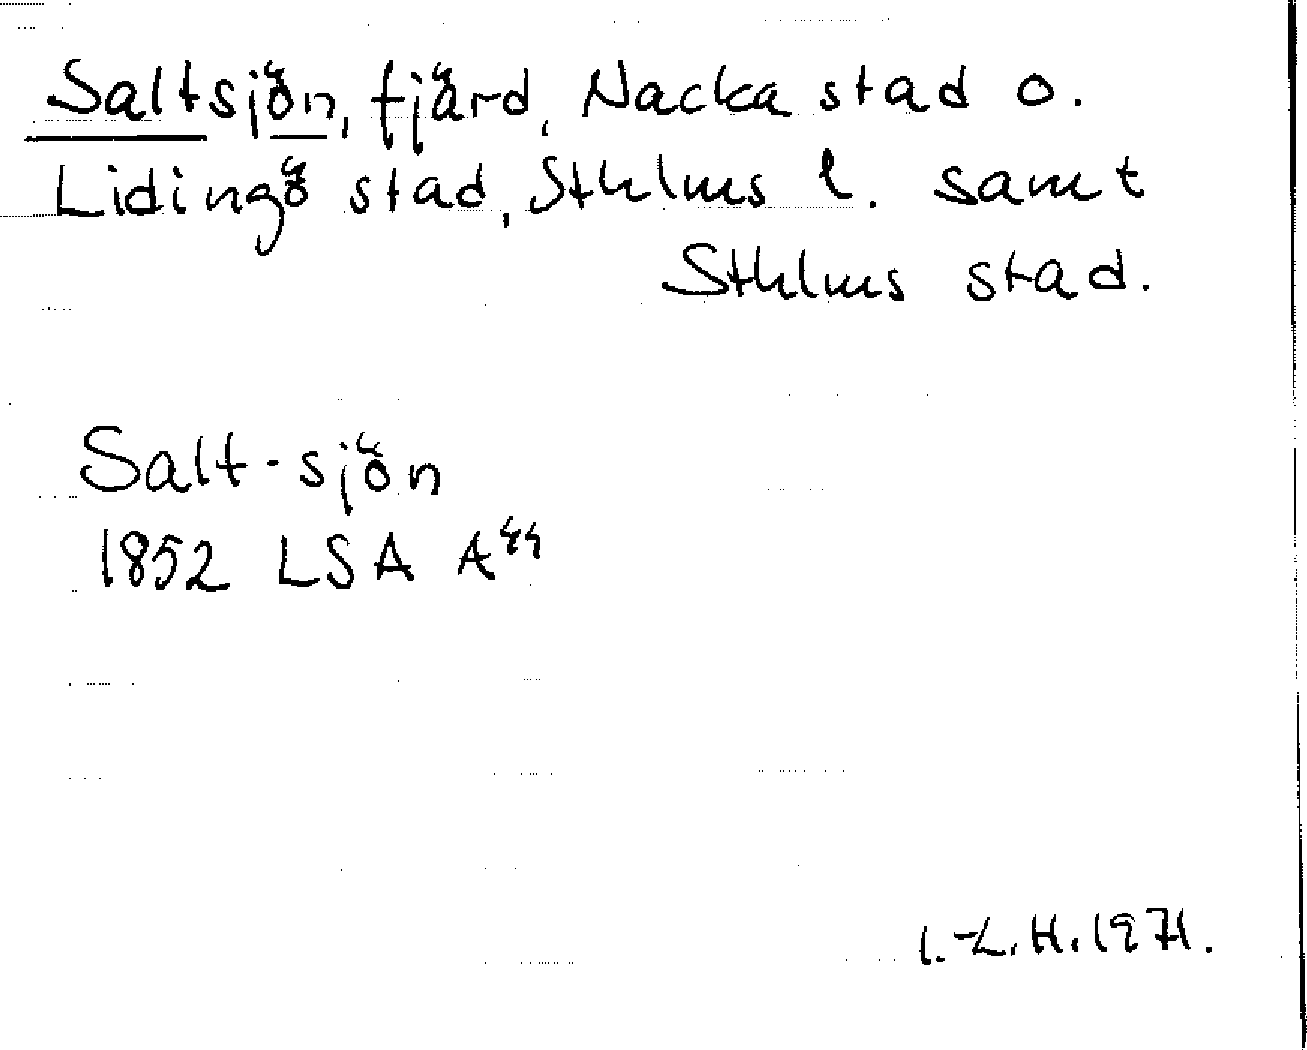 Saltsjön, fjärd, Nacka stad o.
Lidingö stad, Sthlms l. samt
Sthlms stad.
Salt-sjön
1852 LSA A⁴⁴
I.-L. H. 1971.